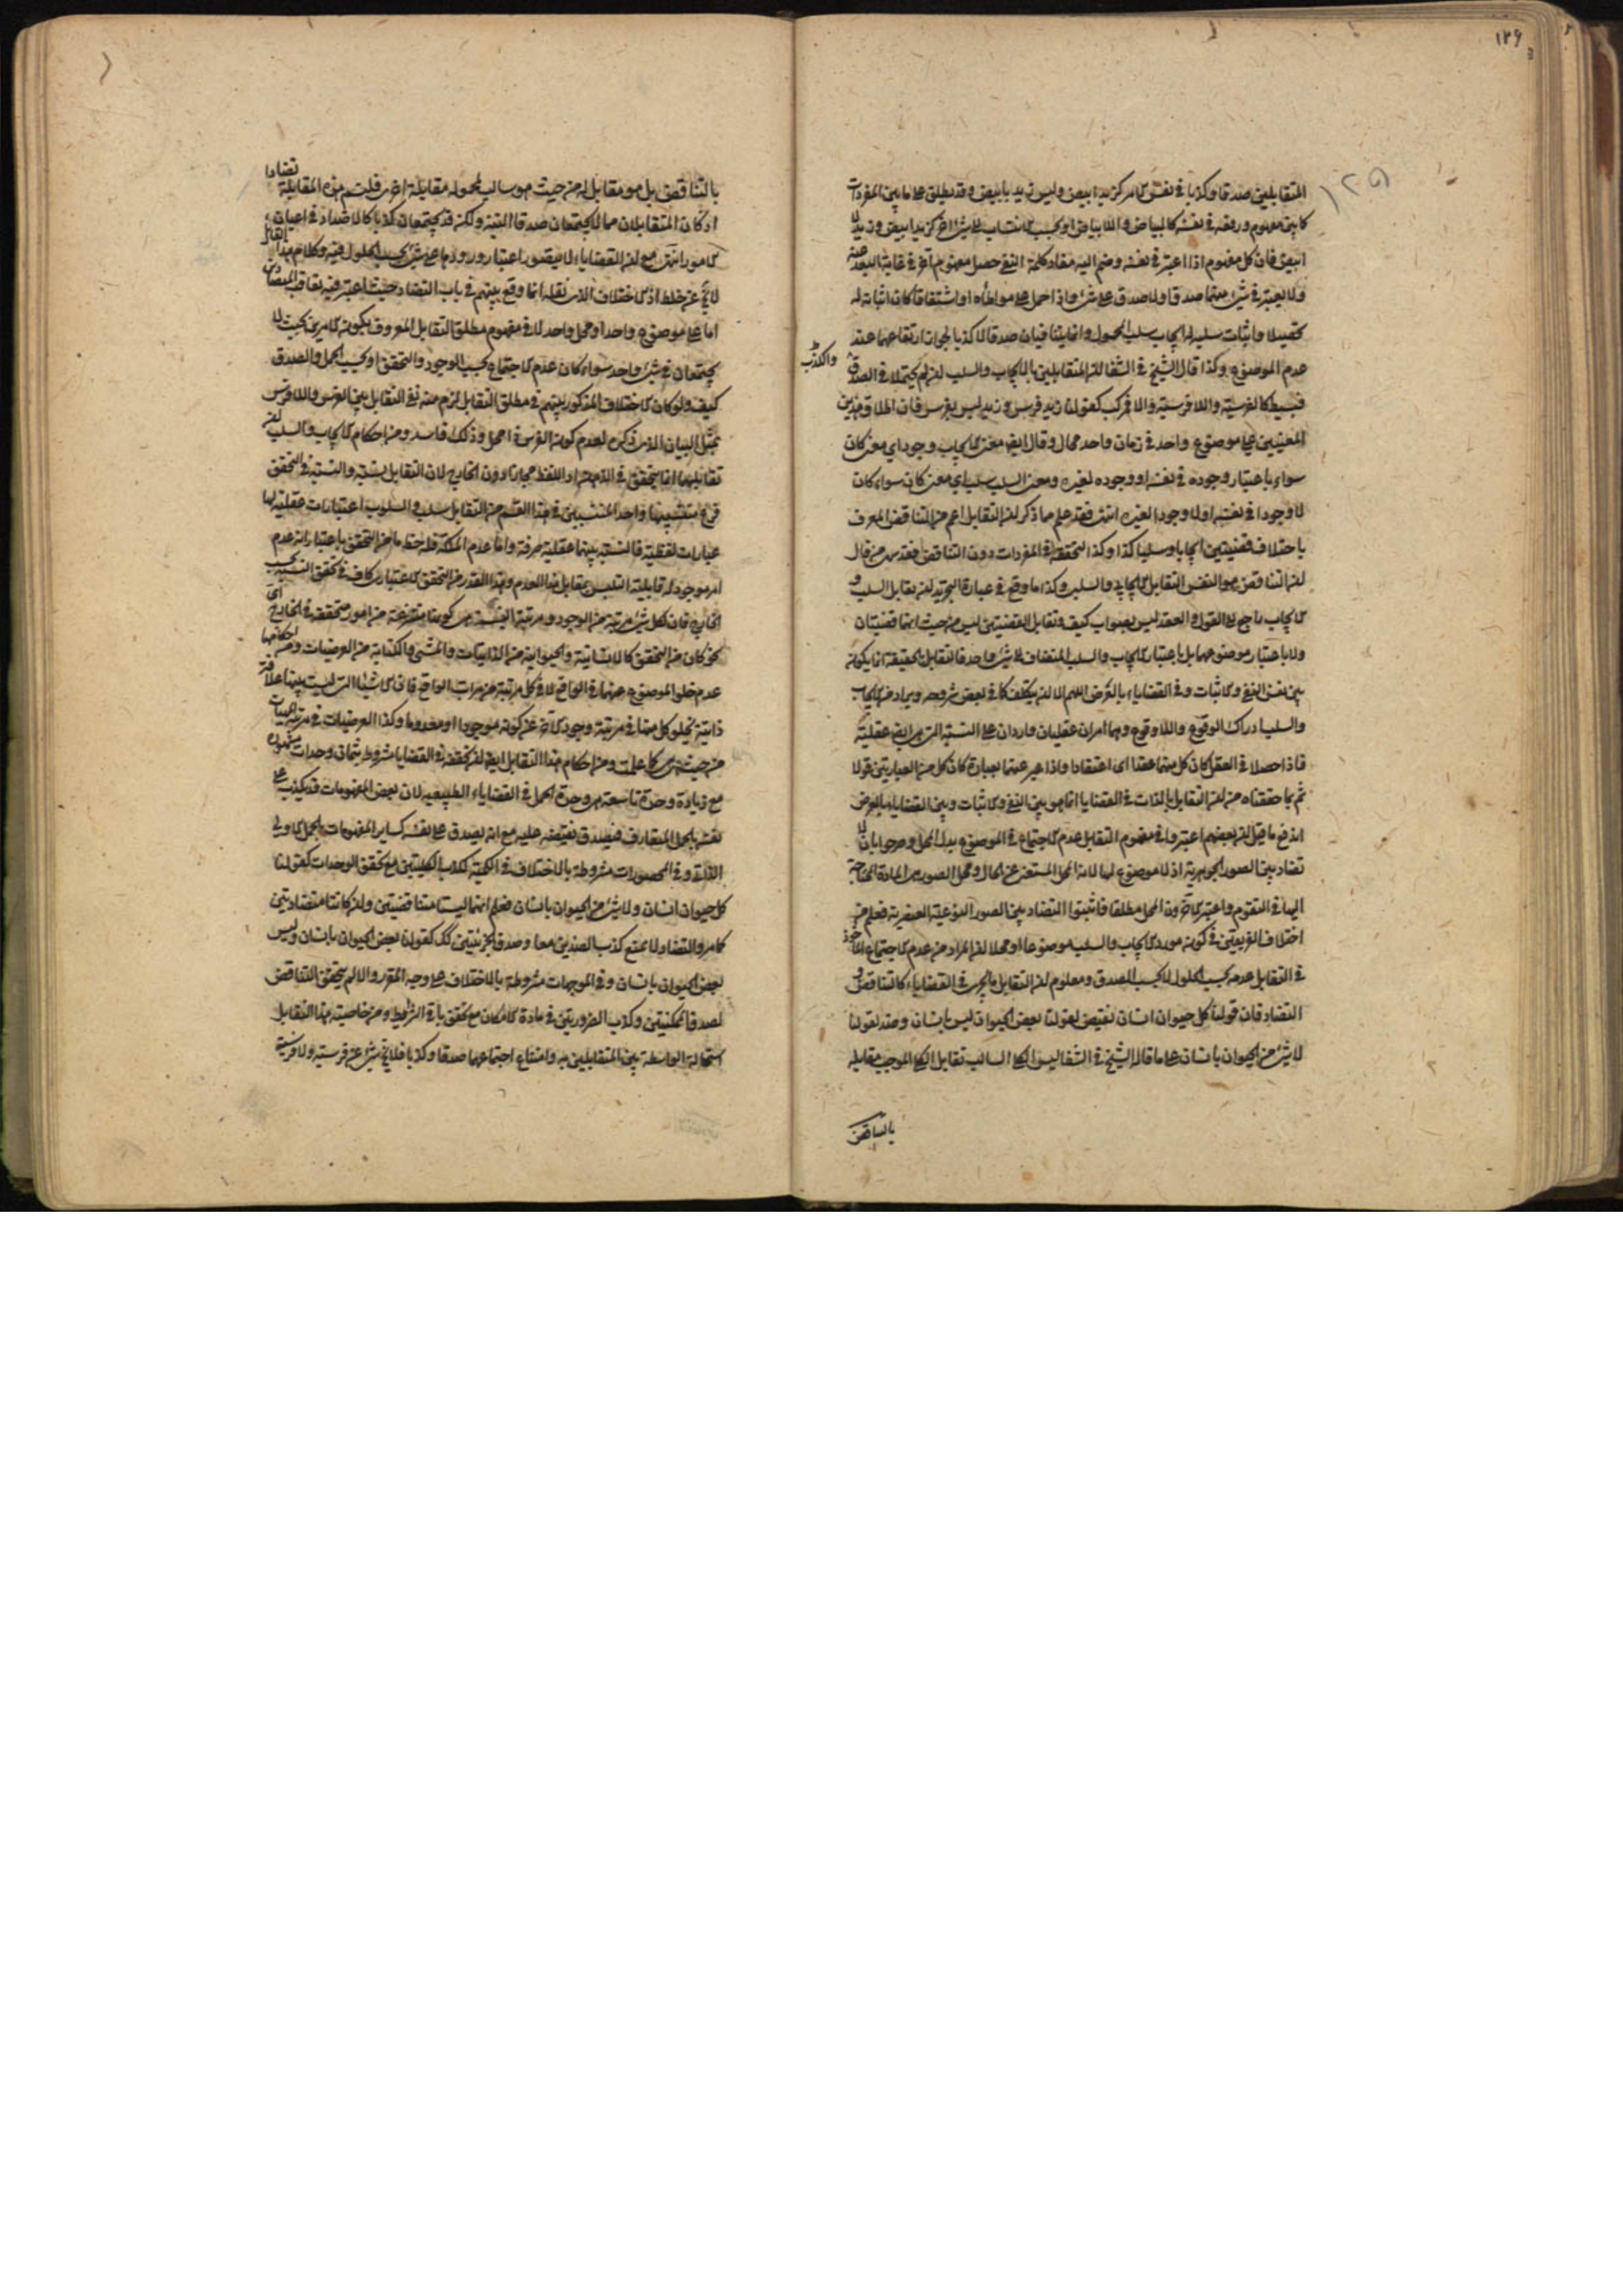 ١٢٦
١٢٥
المتقابلين صدقا وكذبا فى نفس الامر كزيد ابيض وليس زيد بابيض وقد يطلق على ما بين المفردات
كما بين مفهوم ورفعه فى نفسه كالبياض واللابياض او بحسب الانتساب لا شىء اخر كزيد ابيض وزيد لا
ابيض فان كل مفهوم اذا اعتبر فى نفسه وضم اليه مفاد كلمة النفى حصل مفهوم اخر فى غاية البعد عنه
ولا يعتبر فى شىء منهما صدق او لا صدق على شىء واذا حمل على مواطأة او اشتقاقا كان اثباته له
تحصيلا واثبات سلبه له ايجاب سلب المحمول وانما يتنافيان صدقا لا كذبا لجواز ارتفاعهما عند
عدم الموضوع وكذا قال الشيخ فى الشفا ان المتقابلين بالايجاب والسلب ان لم يحتملا الصدق
والكذب
فبسيط كالفرسية واللافرسية والا فمركب كقولنا زيد فرس وزيد ليس بفرس فان اطلاق هذين
المعنيين على موضوع واحد فى زمان واحد محال وقال ايضا معنى الايجاب وجود اى معنى كان
سواء باعتبار وجوده فى نفسه او وجوده لغيره ومعنى السلب سلب اى معنى كان سواء كان
لا وجودا فى نفسه او لا وجودا لغيره انتهى فقد علم مما ذكر ان التقابل اعم من التناقض المعرف
باختلاف قضيتين ايجابا وسلبا كذا وكذا لتحققه فى المفردات دون التناقض فقد سها من قال
ان التناقض هو النفس التقابل الايجاب والسلب وكذا ما وقع فى عبارة التجريد ان تقابل السلب و
الايجاب راجع الى القول والعقد ليس بصواب كيف وتقابل القضيتين ليس من حيث انهما قضيتان
ولا باعتبار موضوعهما بل باعتبار الايجاب والسلب المضاف الى شىء واحد فالتقابل بالحقيقة انما يكون
بين نفس النفى والاثبات وفى القضاياء بالعرض اللهم الا ان يتكلف كما فى بعض شروحه ويراد من الايجاب
والسلب ادراك الوقوع واللاوقوع وهما امران عقليان واردان على النسبة التى هى ايضا عقلية
فاذا حصلا فى العقل كان كل منهما عقدا اى اعتقادا واذا عبر عنهما بعبارة كان كل من العبارتين قولا
ثم بما حققناه من ان التقابل بالذات فى القضايا انما هى بين النفى والاثبات وبين القضايا بالعرض
اندفع ما قيل ان بعضهم اعتبروا فى مفهوم التقابل عدم الاجتماع فى الموضوع بدل المحل وصرحوا بان لا
تضاد بين الصور الجوهرية اذ لا موضوع لها لانه المحل المستغنى عن الحال ومحل الصور هى المادة المحتاجة
اليها فى التقوم واعتبر الاخرون المحل مطلقا فاثبتوا التضاد بين الصور النوعية العنصرية فعلم من
اختلاف الفريقين فى كونه مورد الايجاب والسلب موضوعا او محلا ان المراد من عدم الاجتماع المأخوذ
فى التقابل عدمه بحسب الحلول لا بحسب الصدق ومعلوم ان التقابل مما يجرى فى القضاياء كالتناقض و
التضاد فان قولنا كل حيوان انسان نقيض لقولنا بعض الحيوان ليس بانسان وضد لقولنا
لا شىء من الحيوان بانسان على ما قاله الشيخ فى الشفا ليس الكلى السالب تقابل الكلى الموجب مقابلة
بالتناقض
بالتناقض بل هو مقابل له من حيث هو سالب لمحموله مقابلة اخرى فلتسم هذه المقابلة تضادا
اذ كان المتقابلان مما لا يجتمعان صدقا البتة ولكن قد يجتمعان كذبا كالاضداد فى اعيان
الامور انتهى مع ان القضاياء لا يتصور اعتبار ورودها على شىء بحسب الحلول فيه وكلام هذا القائل
لا يخ عن خلط اذ الاختلاف الذى نقله انما وقع بينهم فى باب التضاد حيث اعتبر فيه تعاقب المتضادين
اما على موضوع واحد او محل واحد لا فى مفهوم مطلق التقابل المعروف بكون الامرين بحيث لا
يجتمعان فى شىء واحد سواء كان عدم الاجتماع بحسب الوجود والتحقق او بحسب الحمل والصدق
كيف ولو كان الاختلاف المذكور بينهم فى مطلق التقابل لزم منه نفى التقابل بين الفرس واللافرس
بمثل البيان الذى ذكره لعدم كون الفرس فى المحل وذلك فاسد ومن احكام الايجاب والسلب ان
تقابلهما انما يتحقق فى الذهن او اللفظ مجازا دون الخارج لان التقابل نسبة والنسبة فى التحقق
فرع منتسبيها واحد المنتسبين فى هذا القسم من التقابل سلب والسلوب اعتبارات عقلية لها
عبارات لفظية فالنسبة بينهما عقلية صرفة واما عدم الملكة فله حظ ما من التحقق باعتبار انه عدم
امر موجود له قابلية التلبس بمقابل هذا العدم وهذا القدر من التحقق الاعتبارى كاف فى تحقق النسبة بحسب
الخارج فان لكل شىء مرتبة من الوجود ومرتبة النسبة هى كونها منتزعة من امور متحققة فى الخارج اى
نحو كان من التحقق كالانسانية والحيوانية من الذاتيات والمشى والكتابة من العرضيات ومن احكامها
عدم خلو الموضوع عنهما فى الواقع لا فى كل مرتبة من مراتب الواقع فان الاشياء التى ليست بينها علاقة
ذاتية يخلو كل منها فى مرتبة وجود الاخر عن كونه موجودا او معدوما وكذا العرضيات فى مرتبة الماهيات
من حيث هى كما علمت ومن احكام هذا التقابل ايضا ان تحققه فى القضايا مشروط بثمان وحدات مشهورة
مع زيادة وحدة تاسعة هى وحدة الحمل فى القضاياء الطبيعية لان بعض المفهومات قد يكذب على
نفسه بالحمل المتعارف فيصدق نقيضه عليه مع انه يصدق على نفسه كساير المفهومات بالحمل الاولى
الذاتى وفى المحصورات مشروطة بالاختلاف فى الكمية لكذب الكليتين مع تحقق الوحدات كقولنا
كل حيوان انسان ولا شىء من الحيوان بانسان فعلم انهما ليستا متناقضتين وان كانتا متضادتين
كما مر والتضاد لا يمنع كذب الضدين معا وصدق الجزئيتين كك كقولنا بعض الحيوان بانسان وليس
بعض الحيوان بانسان وفى الموجهات مشروطة بالاختلاف على وجه المقرر والا لم يتحقق التناقض
لصدق الممكنتين وكذب الضروريتين فى مادة الامكان مع تحقق باقى الشرايط ومن خاصية هذا التقابل
استحالة الواسطة بين المتقابلين به وامتناع اجتماعهما صدقا وكذبا فلا يخ شىء عن فرسية ولا فرسية